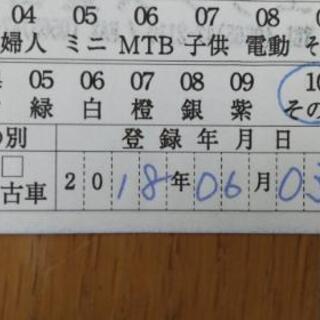 04 05 06 07 08
婦人 ミニ MTB 子供 電動 そ
05 06 07 08 09 10
緑 白 橙 銀 紫 その
別 登録年月日
古車 2018年06月03